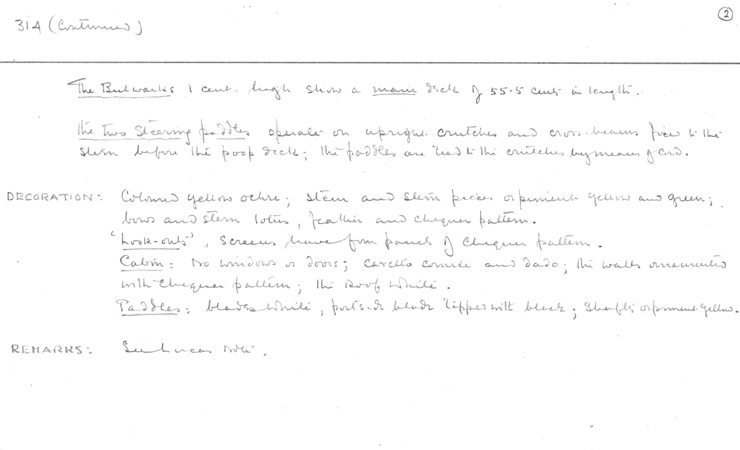 2
314 (Continued)
The Bulwarks 1 cent. high show a main deck of 55.5 cents in length.
The two steering paddles operate on upright crutches and cross-beams fixed to the
stern before the poop deck; the paddles are tied to the crutches by means of cord.
DECORATION: Coloured yellow ochre; stem and stern pieces orpiment yellow and green;
bows and stern lotus, feather and chequer pattern.
'Look-outs', screens have four panels of chequer pattern.
Cabin: No windows or doors; cavetto cornice and dado; the walls ornamented
with chequer pattern; the roof white.
Paddles: blades white, port side blade tipped with black; shafts orpiment yellow.
REMARKS: See Lucas note.